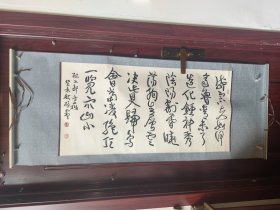 岱宗夫如何
齊魯青未了
造化鍾神秀
陰陽割昏曉
蕩胸生層雲
決眥入歸鳥
會當凌絕頂
一覽眾山小
杜工部